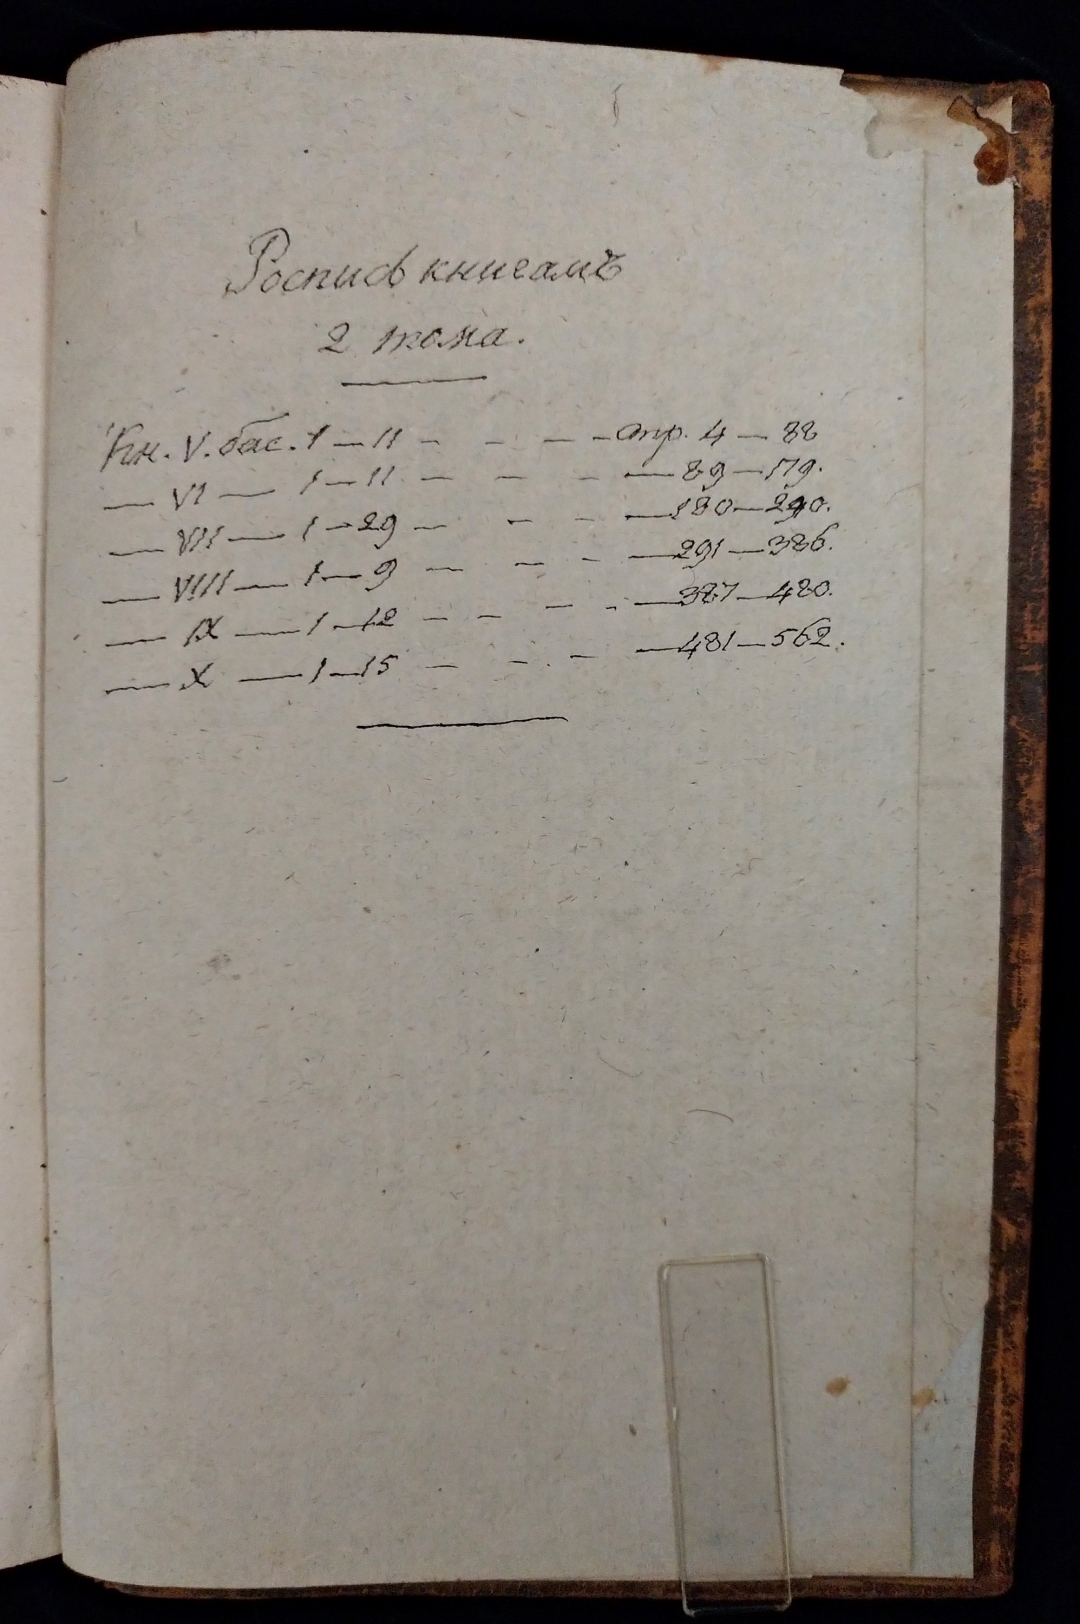 Роспись книгамъ
2 тома.
Кн. V. бас. 1 — 11 — — — — стр. 4 — 88
— VI — 1 — 11 — — — — 89 — 179.
— VII — 1 — 29 — — — — 180 — 290.
— VIII — 1 — 9 — — — — 291 — 386.
— IX — 1 — 12 — — — — — 387 — 480.
— X — 1 — 15 — — — — 481 — 562.